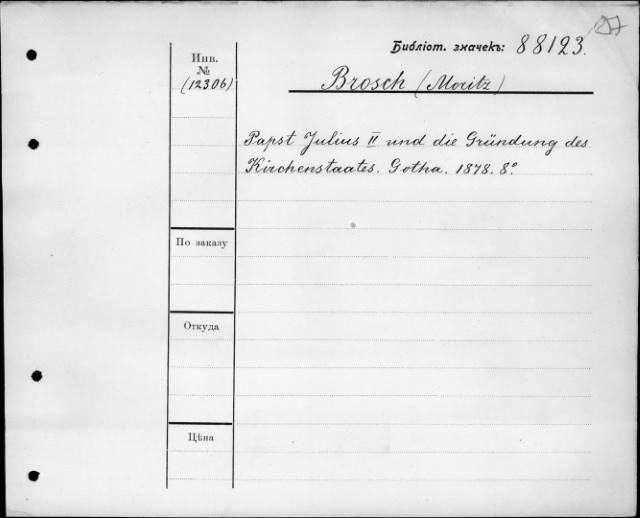 Библіот. значекъ: 88123.
Инв.
№
(12306)
Brosch (Moritz)
Papst Julius II und die Gründung des
Kirchenstaates. Gotha. 1878. 8º
По заказу
Откуда
Цѣна